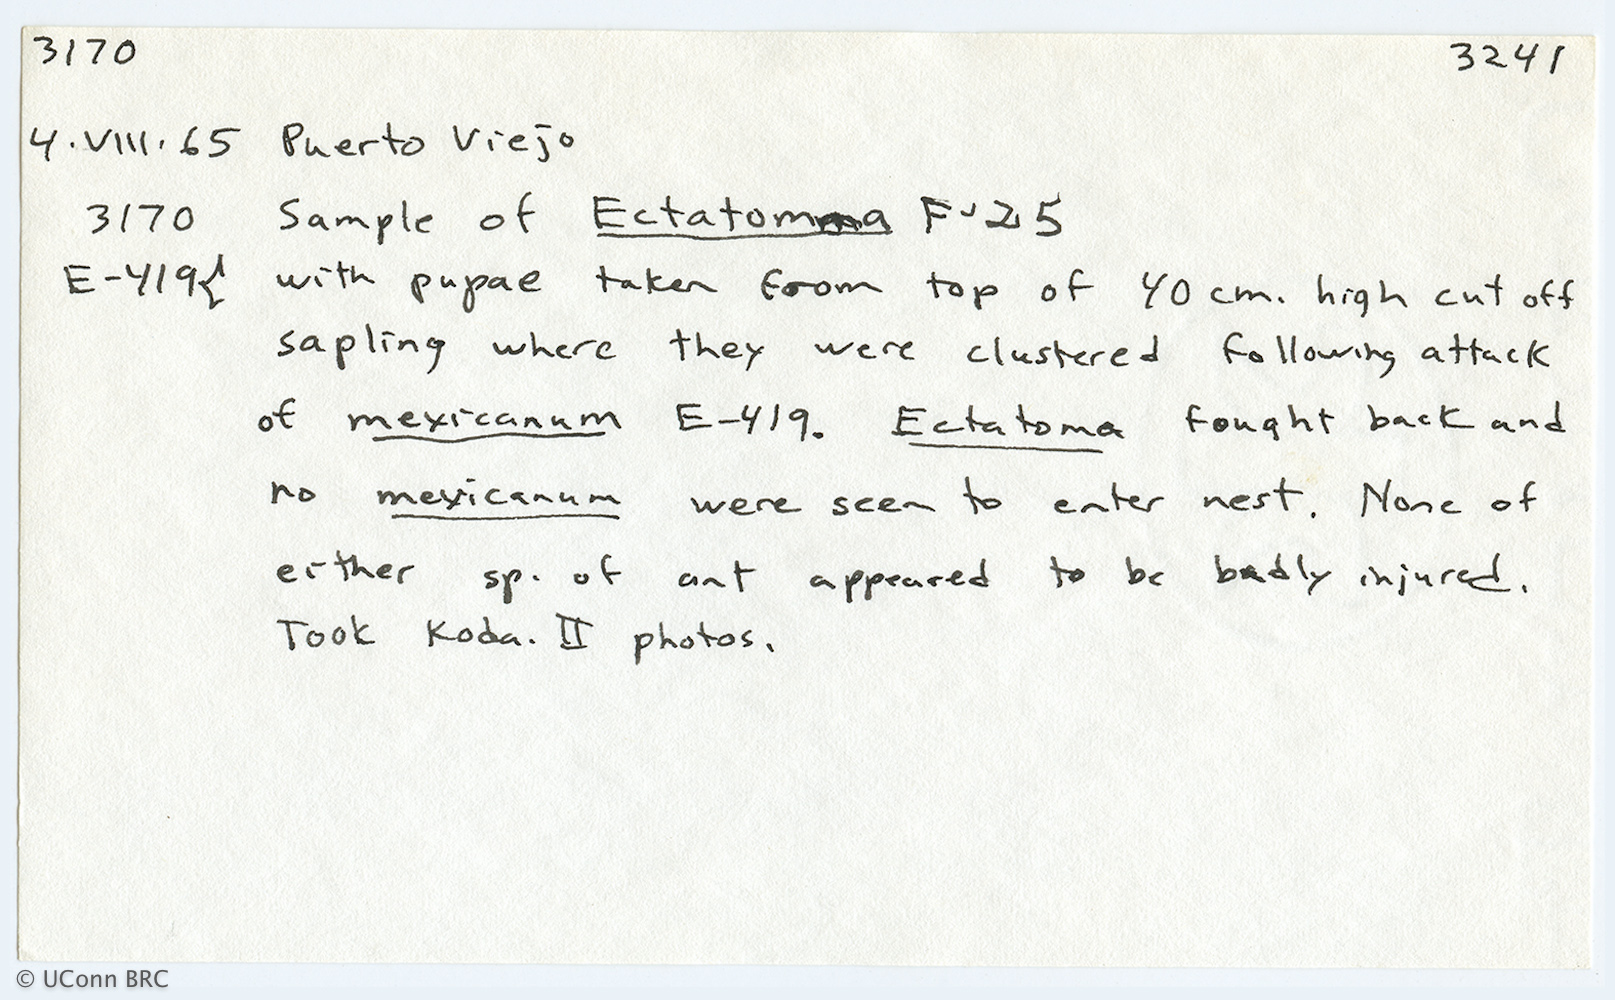 3170 3241
4.VIII.65 Puerto Viejo
3170 Sample of Ectatomma F-25
E-419{ with pupae taken from top of 40 cm. high cut off
sapling where they were clustered following attack
of mexicanum E-419. Ectatoma fought back and
no mexicanum were seen to enter nest. None of
either sp. of ant appeared to be badly injured.
Took Koda. II photos.
© UConn BRC